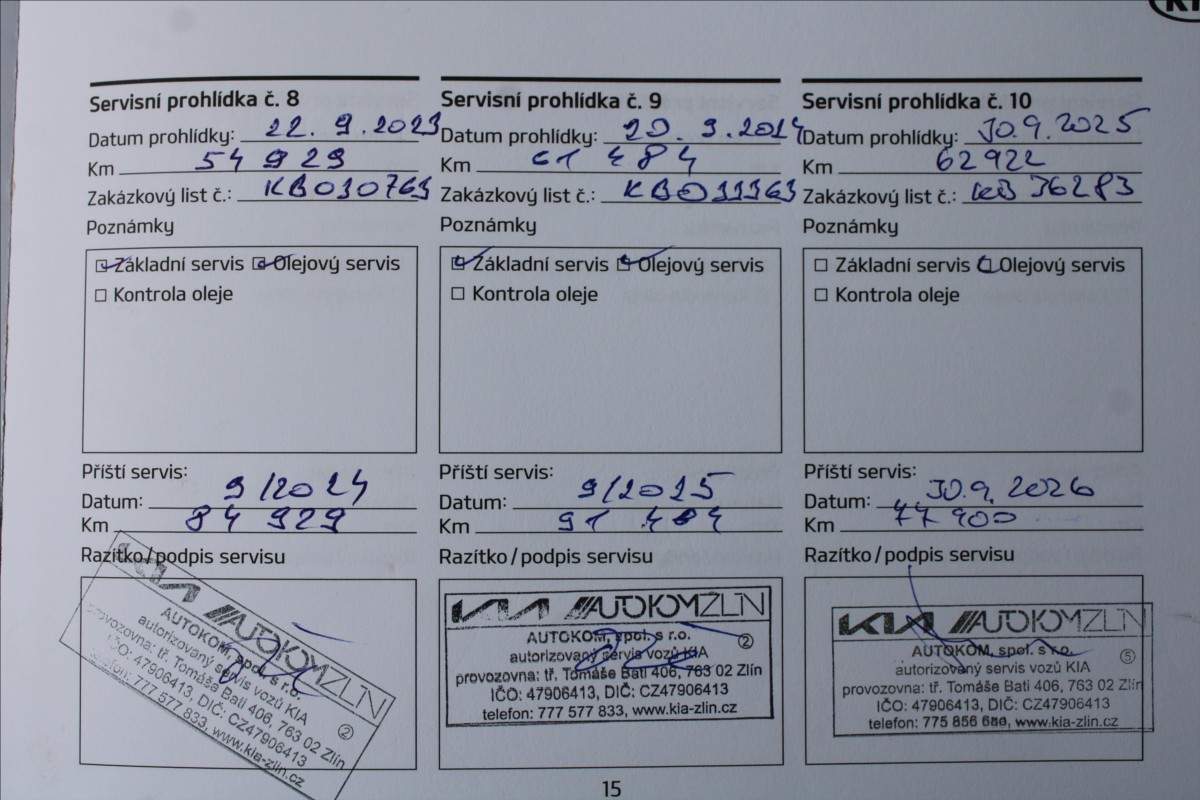 Servisní prohlídka č. 8
Datum prohlídky: 22. 9. 2023
Km 54 929
Zakázkový list č.: KB010763
Poznámky
Základní servis Olejový servis
Kontrola oleje
Příští servis:
Datum: 9/2024
Km 84 929
Razítko/podpis servisu
KIA AUTOKOMZLÍN
AUTOKOM, spol. s r.o.
autorizovaný servis vozů KIA
provozovna: tř. Tomáše Bati 406, 763 02 Zlín
IČO: 47906413, DIČ: CZ47906413
telefon: 777 577 833, www.kia-zlin.cz
2
Servisní prohlídka č. 9
Datum prohlídky: 20. 9. 2024
Km 61 484
Zakázkový list č.: KB011363
Poznámky
Základní servis Olejový servis
Kontrola oleje
Příští servis:
Datum: 9/2025
Km 91
Razítko/podpis servisu
KIA AUTOKOMZLÍN
AUTOKOM, spol. s r.o. 2
autorizovaný servis vozů KIA
provozovna: tř. Tomáše Bati 406, 763 02 Zlín
IČO: 47906413, DIČ: CZ47906413
telefon: 777 577 833, www.kia-zlin.cz
Servisní prohlídka č. 10
Datum prohlídky: 30.9.2025
Km 62922
Zakázkový list č.: KB 36283
Poznámky
Základní servis Olejový servis
Kontrola oleje
Příští servis:
Datum: 30.9. 2026
Km 77 900
Razítko/podpis servisu
KIA AUTOKOMZLÍN
AUTOKOM, spol. s r.o. 5
autorizovaný servis vozů KIA
provozovna: tř. Tomáše Bati 406, 763 02 Zlín
IČO: 47906413, DIČ: CZ47906413
telefon: 775 856 680, www.kia-zlin.cz
15